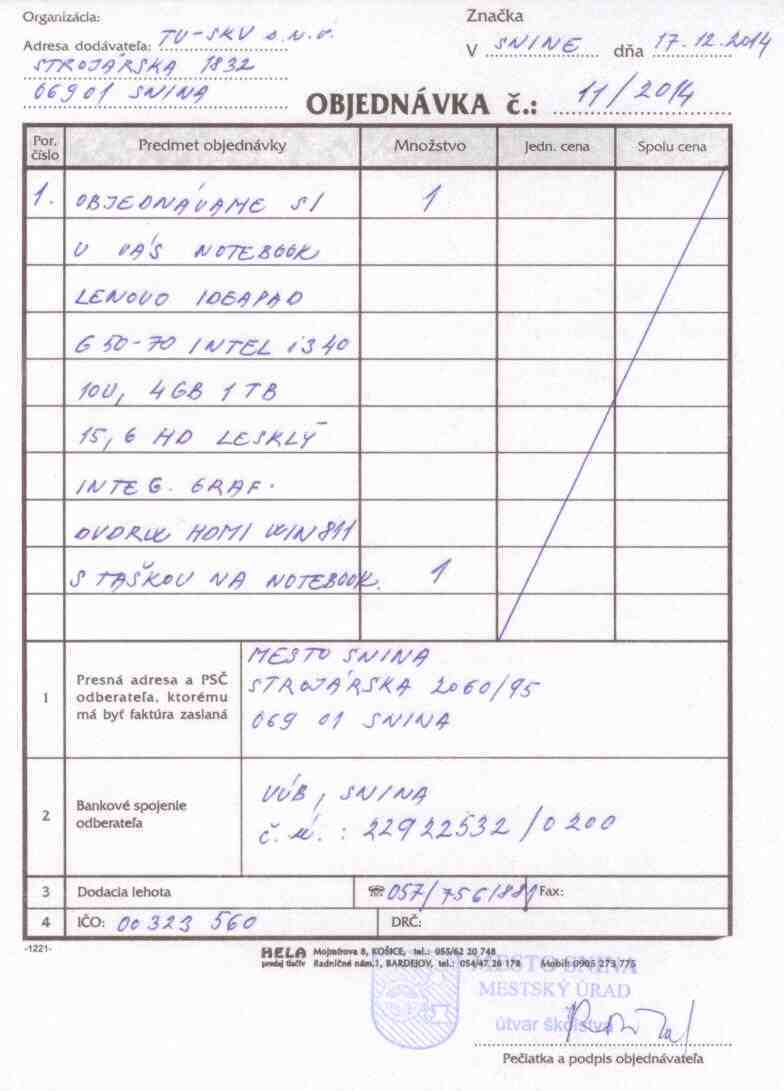 Organizácia:
Značka
Adresa dodávateľa: TV-SKV s.r.o.
V SNINE dňa 17.12.2014
STROJÁRSKA 1832
06901 SNINA
OBJEDNÁVKA č.: 11/2014
Por. číslo Predmet objednávky Množstvo Jedn. cena Spolu cena
1. OBJEDNÁVAME SI 1
U VÁS NOTEBOOK
LENOVO IDEAPAD
G 50-70 INTEL i3 40
10U, 4GB 1TB
15,6 HD LESKLÝ
INTEG. GRAF.
DVDRW HDMI WIN811
S TAŠKOU NA NOTEBOOK. 1
1 Presná adresa a PSČ
odberateľa, ktorému
má byť faktúra zaslaná
MESTO SNINA
STROJÁRSKA 2060/95
069 01 SNINA
2 Bankové spojenie
odberateľa
VÚB, SNINA
č.ú.: 22922532/0200
3 Dodacia lehota ☏ 057/7561881 Fax:
4 IČO: 00 323 560 DRČ:
-1221-
HELA Mojmírova 8, KOŠICE, tel.: 055/62 20 748
predaj tlačív Radničné nám.1, BARDEJOV, tel.: 054/47 26 178 Mobil: 0905 273 775
MESTO SNINA
MESTSKÝ ÚRAD
útvar školstva
Pečiatka a podpis objednávateľa